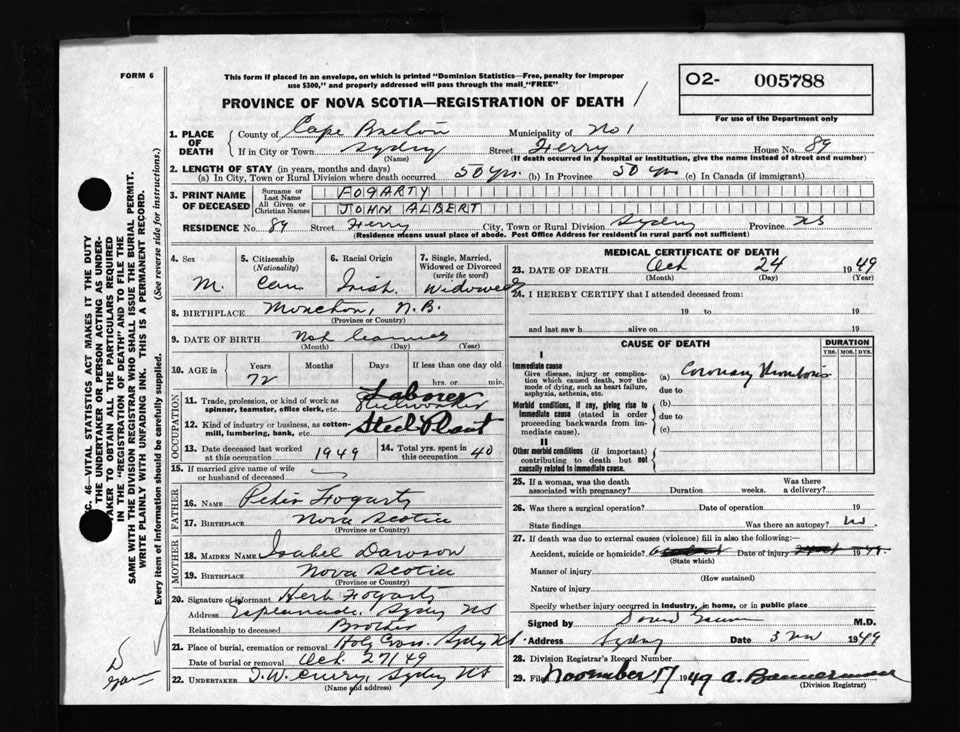 FORM 6
This form if placed in an envelope, on which is printed "Dominion Statistics—Free, penalty for improper
use $300," and properly addressed will pass through the mail "FREE"
PROVINCE OF NOVA SCOTIA—REGISTRATION OF DEATH /
O2- 005788
For use of the Department only
1. PLACE OF DEATH County of Cape Breton Municipality of No 1
If in City or Town Sydney Street Ferry House No. 89
(Name) (If death occurred in a hospital or institution, give the name instead of street and number)
2. LENGTH OF STAY (in years, months and days)
(a) In City, Town or Rural Division where death occurred 50 yrs. (b) In Province 50 yrs (c) In Canada (if immigrant)
3. PRINT NAME OF DECEASED Surname or Last Name FOGARTY
All Given or Christian Names JOHN ALBERT
RESIDENCE No. 89 Street Ferry City, Town or Rural Division Sydney Province NS
(Residence means usual place of abode. Post Office Address for residents in rural parts not sufficient)
4. Sex M.
5. Citizenship (Nationality) Can
6. Racial Origin Irish.
7. Single, Married, Widowed or Divorced (write the word) Widowed
8. BIRTHPLACE Moncton, N.B.
(Province or Country)
9. DATE OF BIRTH Not
(Month) (Day) (Year)
10. AGE in Years 72 Months Days If less than one day old
hrs. or min.
OCCUPATION
11. Trade, profession, or kind of work as spinner, teamster, office clerk, etc. Laborer Steelworker
12. Kind of industry or business, as cotton-mill, lumbering, bank, etc. Steel Plant
13. Date deceased last worked at this occupation 1949
14. Total yrs. spent in this occupation 40
15. If married give name of wife or husband of deceased
FATHER
16. NAME Peter Fogarty
17. BIRTHPLACE Nova Scotia
(Province or Country)
MOTHER
18. MAIDEN NAME Isabel Dawson
19. BIRTHPLACE Nova Scotia
(Province or Country)
20. Signature of informant Herb Fogarty
Address Esplanade, Sydney NS
Relationship to deceased Brother
21. Place of burial, cremation or removal Holy Cross. Sydney NS
Date of burial or removal Oct. 27/49
22. UNDERTAKER T.W. Curry, Sydney NS
(Name and address)
MEDICAL CERTIFICATE OF DEATH
23. DATE OF DEATH Oct 24 1949
(Month) (Day) (Year)
24. I HEREBY CERTIFY that I attended deceased from:
19 to 19
and last saw h alive on 19
CAUSE OF DEATH
DURATION
YRS. MOS. DYS.
I
Immediate cause
Give disease, injury or complication which caused death, NOT the mode of dying, such as heart failure, asphyxia, asthenia, etc.
(a) Coronary Thrombosis
due to
Morbid conditions, if any, giving rise to immediate cause (stated in order proceeding backwards from immediate cause).
(b)
due to
(c)
II
Other morbid conditions (if important) contributing to death but not causally related to immediate cause.
25. If a woman, was the death associated with pregnancy? Duration weeks. Was there a delivery?
26. Was there a surgical operation? Date of operation 19
State findings Was there an autopsy? No.
27. If death was due to external causes (violence) fill in also the following:—
Accident, suicide or homicide? Date of injury 19
(State which)
Manner of injury
(How sustained)
Nature of injury
Specify whether injury occurred in industry, in home, or in public place
Signed by M.D.
Address Sydney Date 3 Nov 1949
28. Division Registrar's Record Number
29. Filed November 17 1949 A. Bannerman
(Division Registrar)
SEC. 46—VITAL STATISTICS ACT MAKES IT THE DUTY
OF THE UNDERTAKER OR PERSON ACTING AS UNDER-
TAKER TO OBTAIN ALL THE PARTICULARS REQUIRED
IN THE "REGISTRATION OF DEATH" AND TO FILE THE
SAME WITH THE DIVISION REGISTRAR WHO SHALL ISSUE THE BURIAL PERMIT.
WRITE PLAINLY WITH UNFADING INK. THIS IS A PERMANENT RECORD.
Every item of information should be carefully supplied. (See reverse side for instructions.)